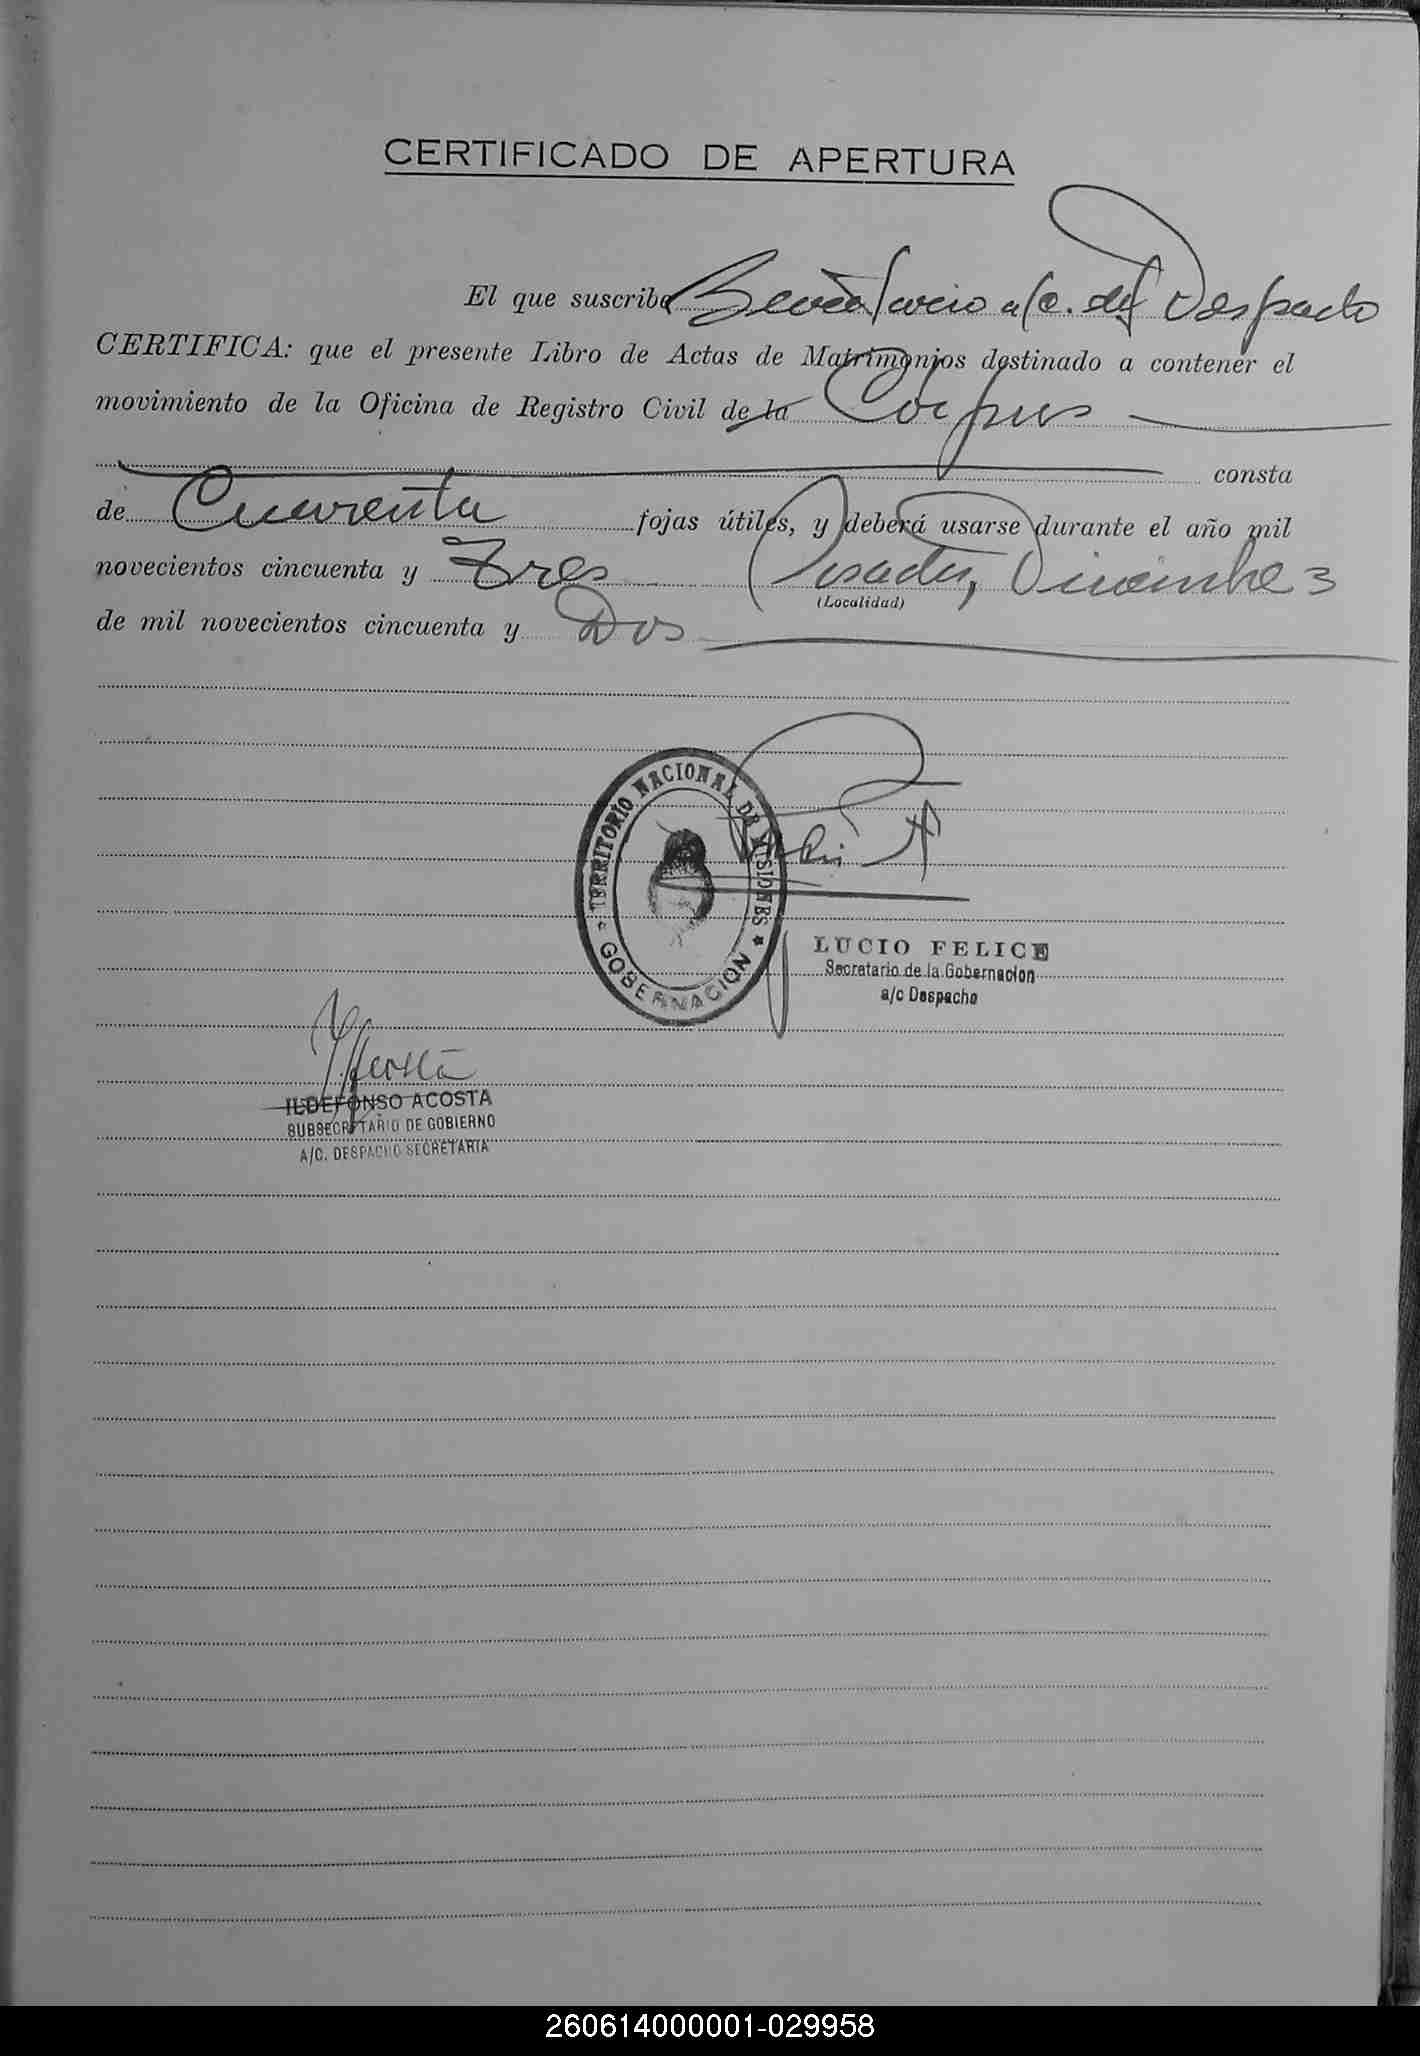 CERTIFICADO DE APERTURA
El que suscribe Secretario a/c. del Despacho
CERTIFICA: que el presente Libro de Actas de Matrimonios destinado a contener el
movimiento de la Oficina de Registro Civil de la Corpus
consta
de Cuarenta fojas útiles, y deberá usarse durante el año mil
novecientos cincuenta y Tres Posadas, Diciembre 3
(Localidad)
de mil novecientos cincuenta y Dos
TERRITORIO NACIONAL DE MISIONES
GOBERNACION
LUCIO FELICE
Secretario de la Gobernacion
a/c Despacho
Acosta
ILDEFONSO ACOSTA
SUBSECRETARIO DE GOBIERNO
A/C. DESPACHO SECRETARIA
260614000001-029958